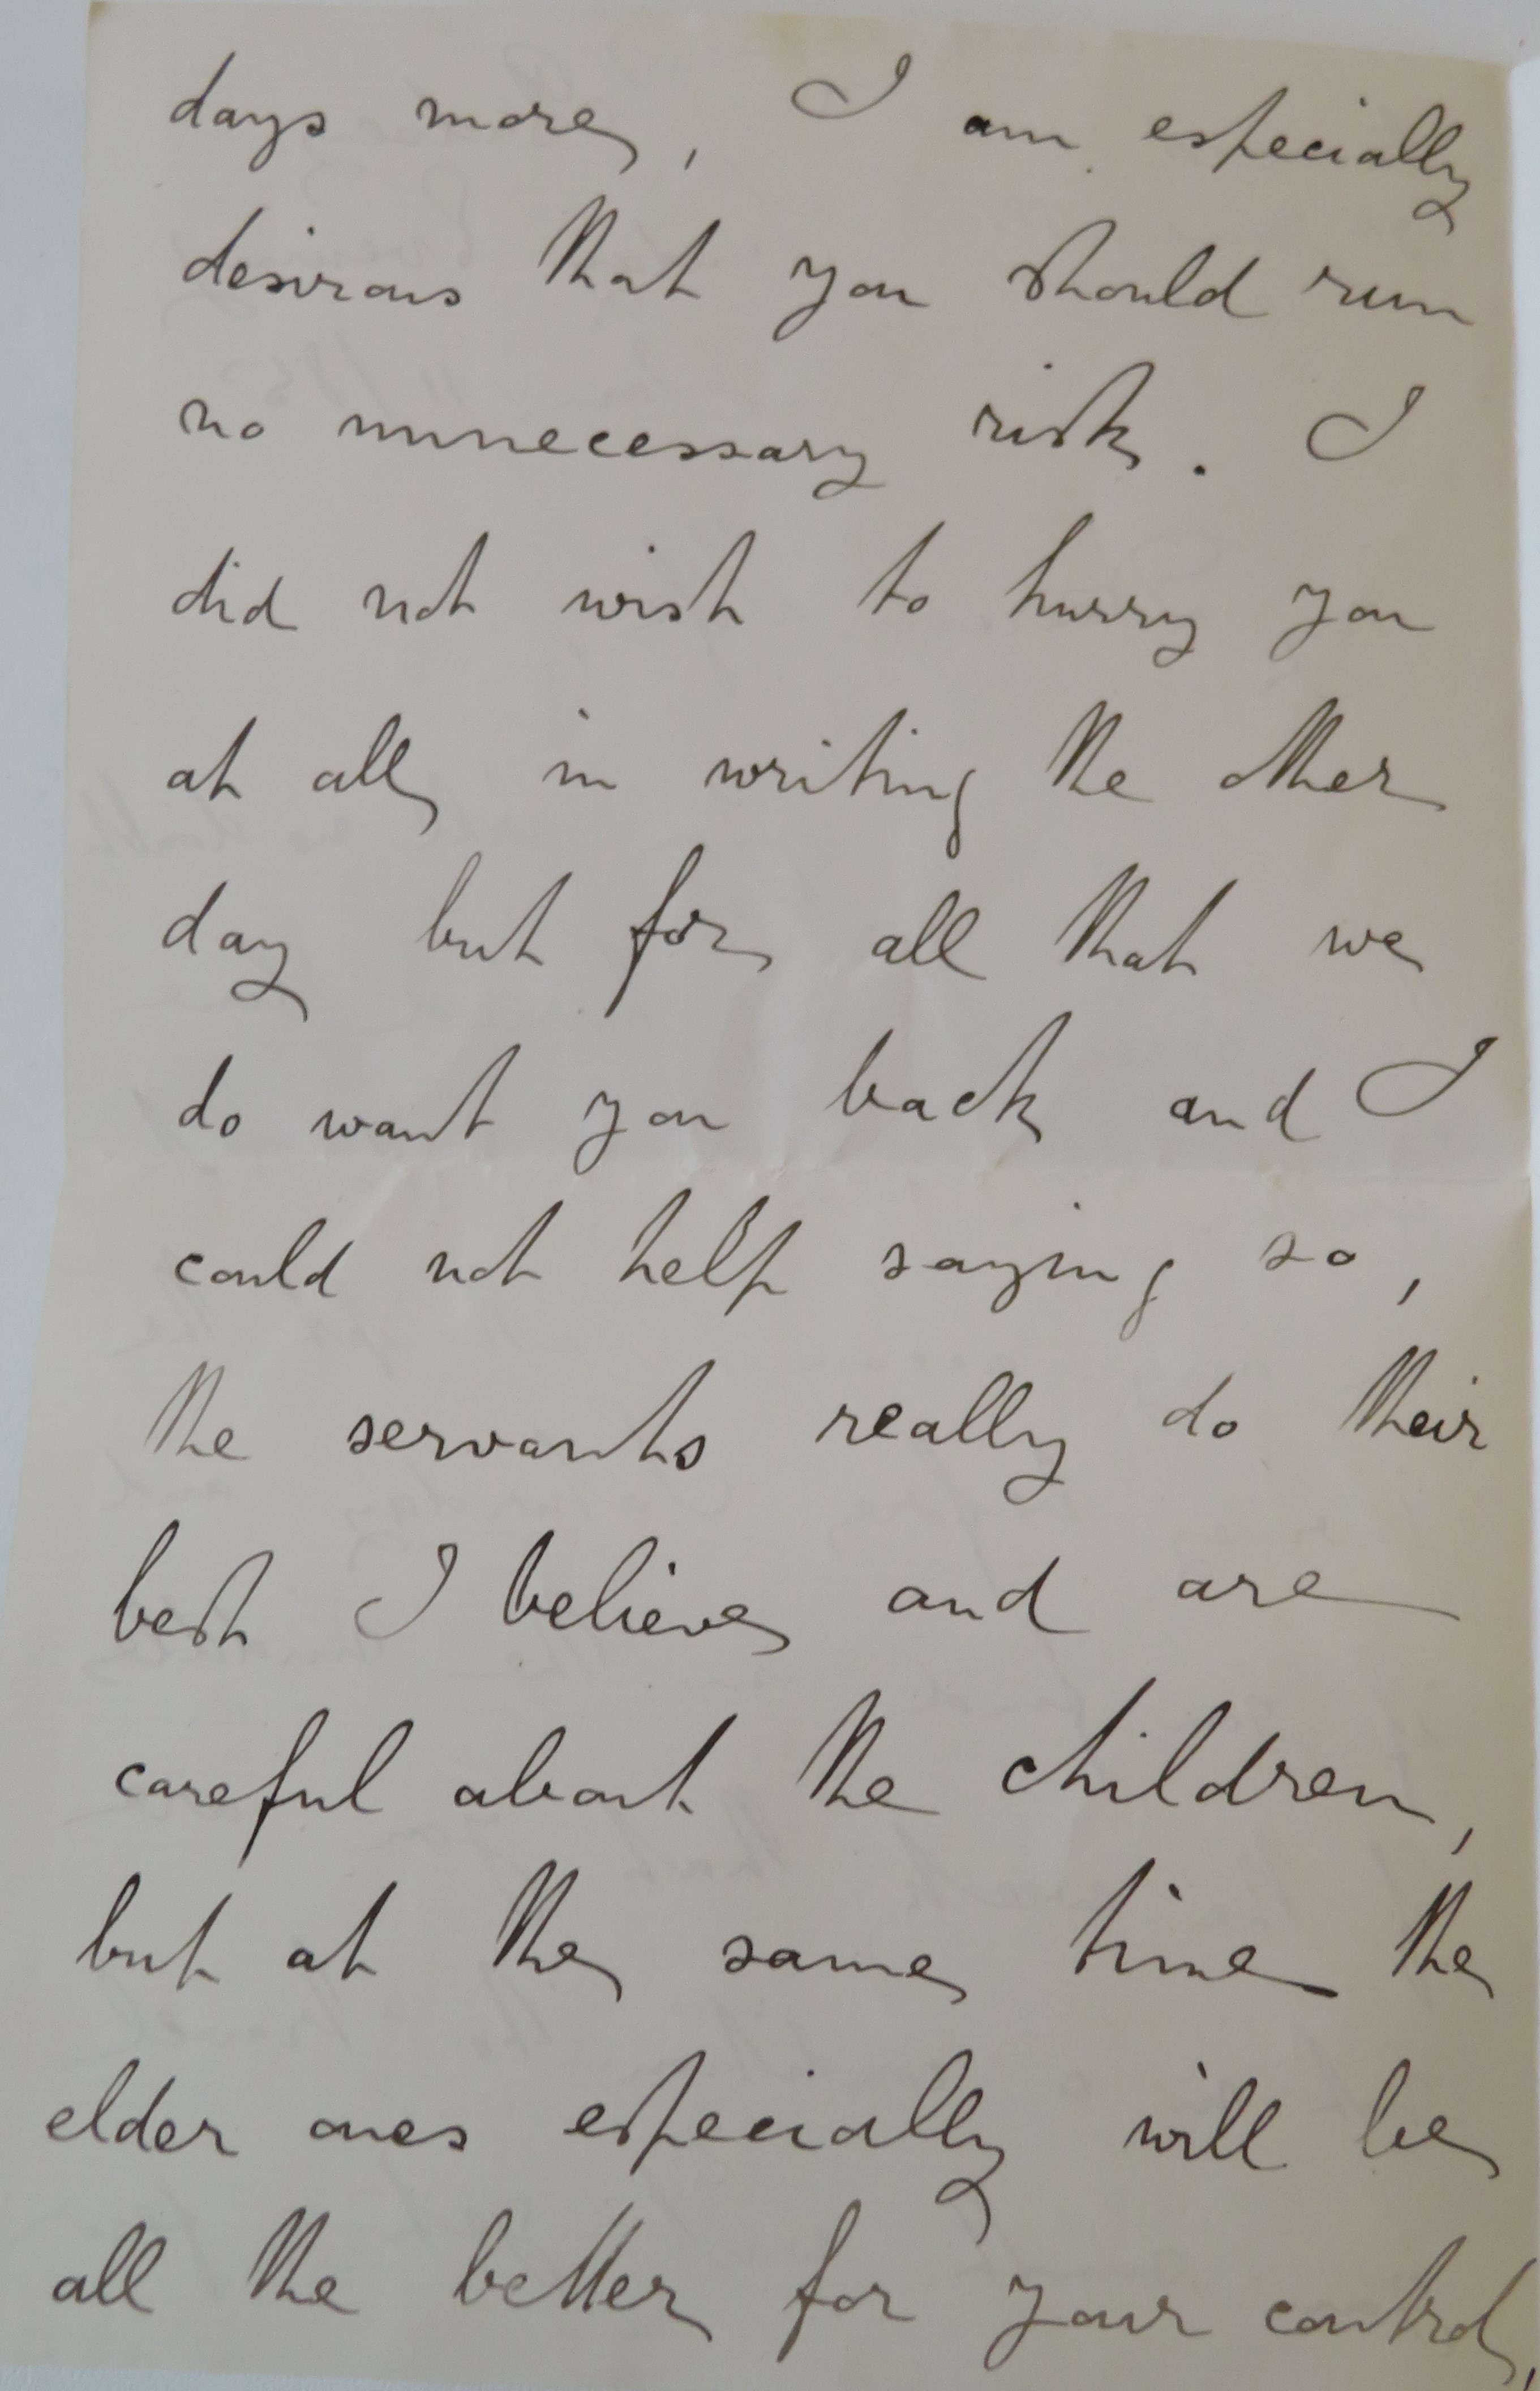 days more, I am especially
desirous that you should run
no unnecessary risk. I
did not wish to hurry you
at all in writing the other
day but for all that we
do want you back and I
could not help saying so,
the servants really do their
best I believe and are
careful about the children,
but at the same time the
elder ones especially will be
all the better for your control,